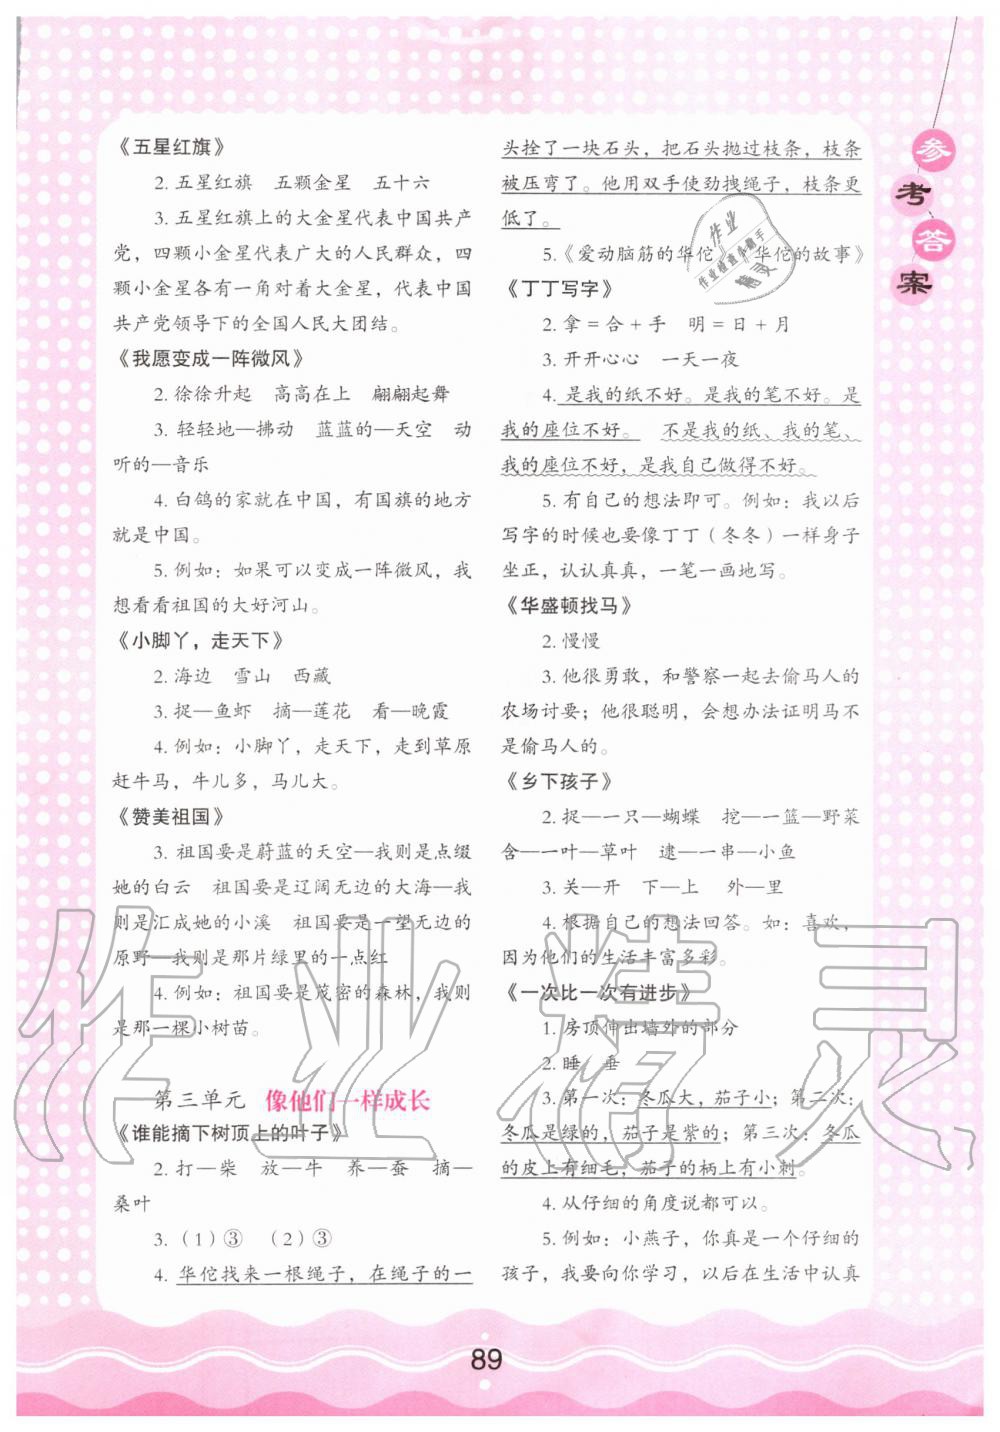 参考答案
《五星红旗》
2. 五星红旗 五颗金星 五十六
3. 五星红旗上的大金星代表中国共产
党，四颗小金星代表广大的人民群众，四
颗小金星各有一角对着大金星，代表中国
共产党领导下的全国人民大团结。
《我愿变成一阵微风》
2. 徐徐升起 高高在上 翩翩起舞
3. 轻轻地—拂动 蓝蓝的—天空 动
听的—音乐
4. 白鸽的家就在中国，有国旗的地方
就是中国。
5. 例如：如果可以变成一阵微风，我
想看看祖国的大好河山。
《小脚丫，走天下》
2. 海边 雪山 西藏
3. 捉—鱼虾 摘—莲花 看—晚霞
4. 例如：小脚丫，走天下，走到草原
赶牛马，牛儿多，马儿大。
《赞美祖国》
3. 祖国要是蔚蓝的天空—我则是点缀
她的白云 祖国要是辽阔无边的大海—我
则是汇成她的小溪 祖国要是一望无边的
原野—我则是那片绿里的一点红
4. 例如：祖国要是茂密的森林，我则
是那一棵小树苗。
第三单元 像他们一样成长
《谁能摘下树顶上的叶子》
2. 打—柴 放—牛 养—蚕 摘—
桑叶
3.（1）③ （2）③
4. 华佗找来一根绳子，在绳子的一
头拴了一块石头，把石头抛过枝条，枝条
被压弯了。他用双手使劲拽绳子，枝条更
低了。
5.《爱动脑筋的华佗》《华佗的故事》
《丁丁写字》
2. 拿＝合＋手 明＝日＋月
3. 开开心心 一天一夜
4. 是我的纸不好。是我的笔不好。是
我的座位不好。 不是我的纸、我的笔、
我的座位不好，是我自己做得不好。
5. 有自己的想法即可。例如：我以后
写字的时候也要像丁丁（冬冬）一样身子
坐正，认认真真，一笔一画地写。
《华盛顿找马》
2. 慢慢
3. 他很勇敢，和警察一起去偷马人的
农场讨要；他很聪明，会想办法证明马不
是偷马人的。
《乡下孩子》
2. 捉—一只—蝴蝶 挖—一篮—野菜
含—一叶—草叶 逮—一串—小鱼
3. 关—开 下—上 外—里
4. 根据自己的想法回答。如：喜欢，
因为他们的生活丰富多彩。
《一次比一次有进步》
1. 房顶伸出墙外的部分
2. 睡 垂
3. 第一次：冬瓜大，茄子小；第二次：
冬瓜是绿的，茄子是紫的；第三次：冬瓜
的皮上有细毛，茄子的柄上有小刺。
4. 从仔细的角度说都可以。
5. 例如：小燕子，你真是一个仔细的
孩子，我要向你学习，以后在生活中认真
89
作业精灵
作业
作业检查小助手
精灵